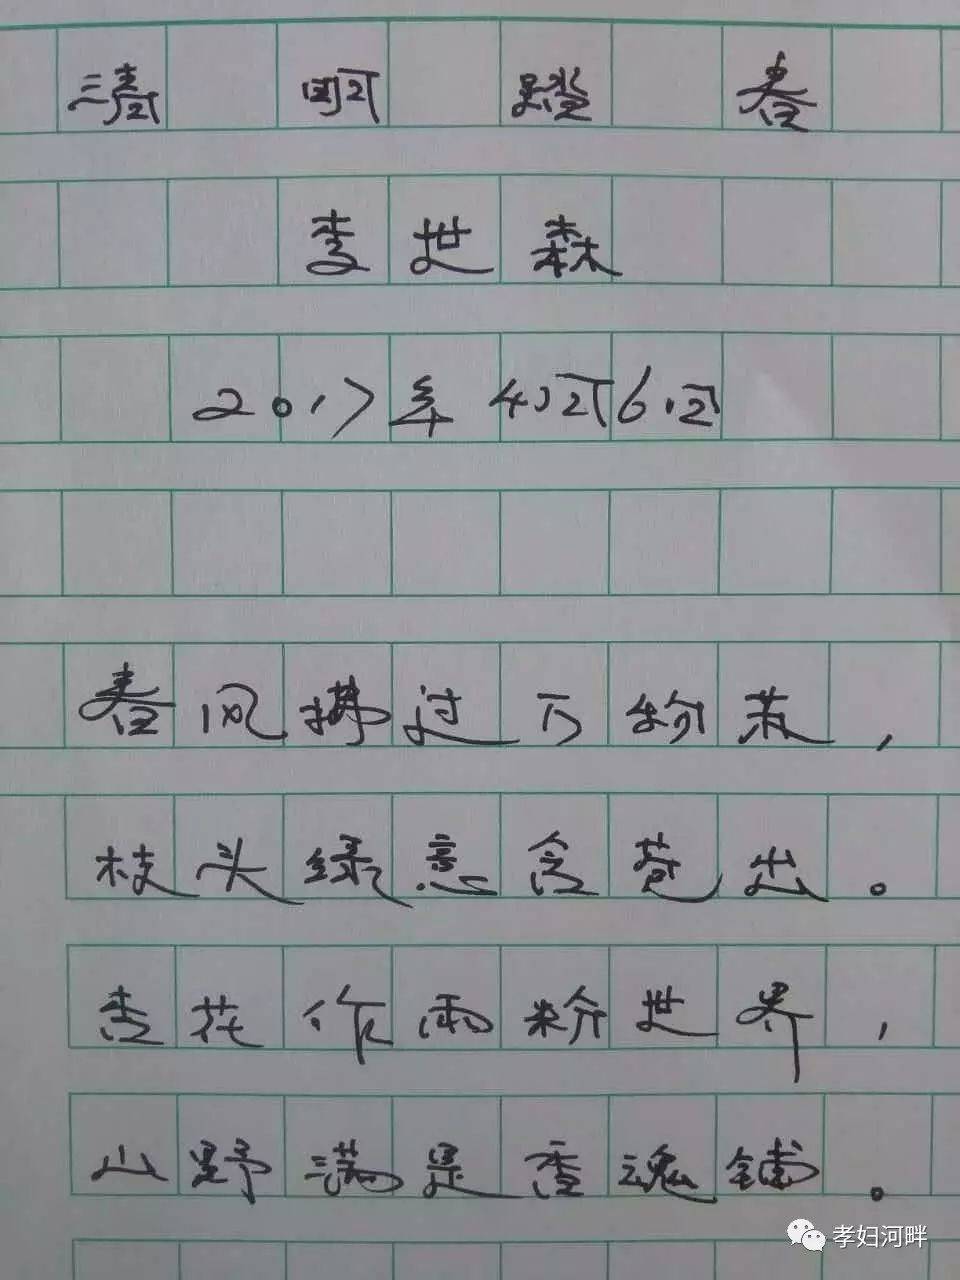 清明踏春
李世森
2017年4月6日
春风拂过万物苏，
枝头绿意含苞出。
杏花作雨粉世界，
山野满是香魂铺。
孝妇河畔